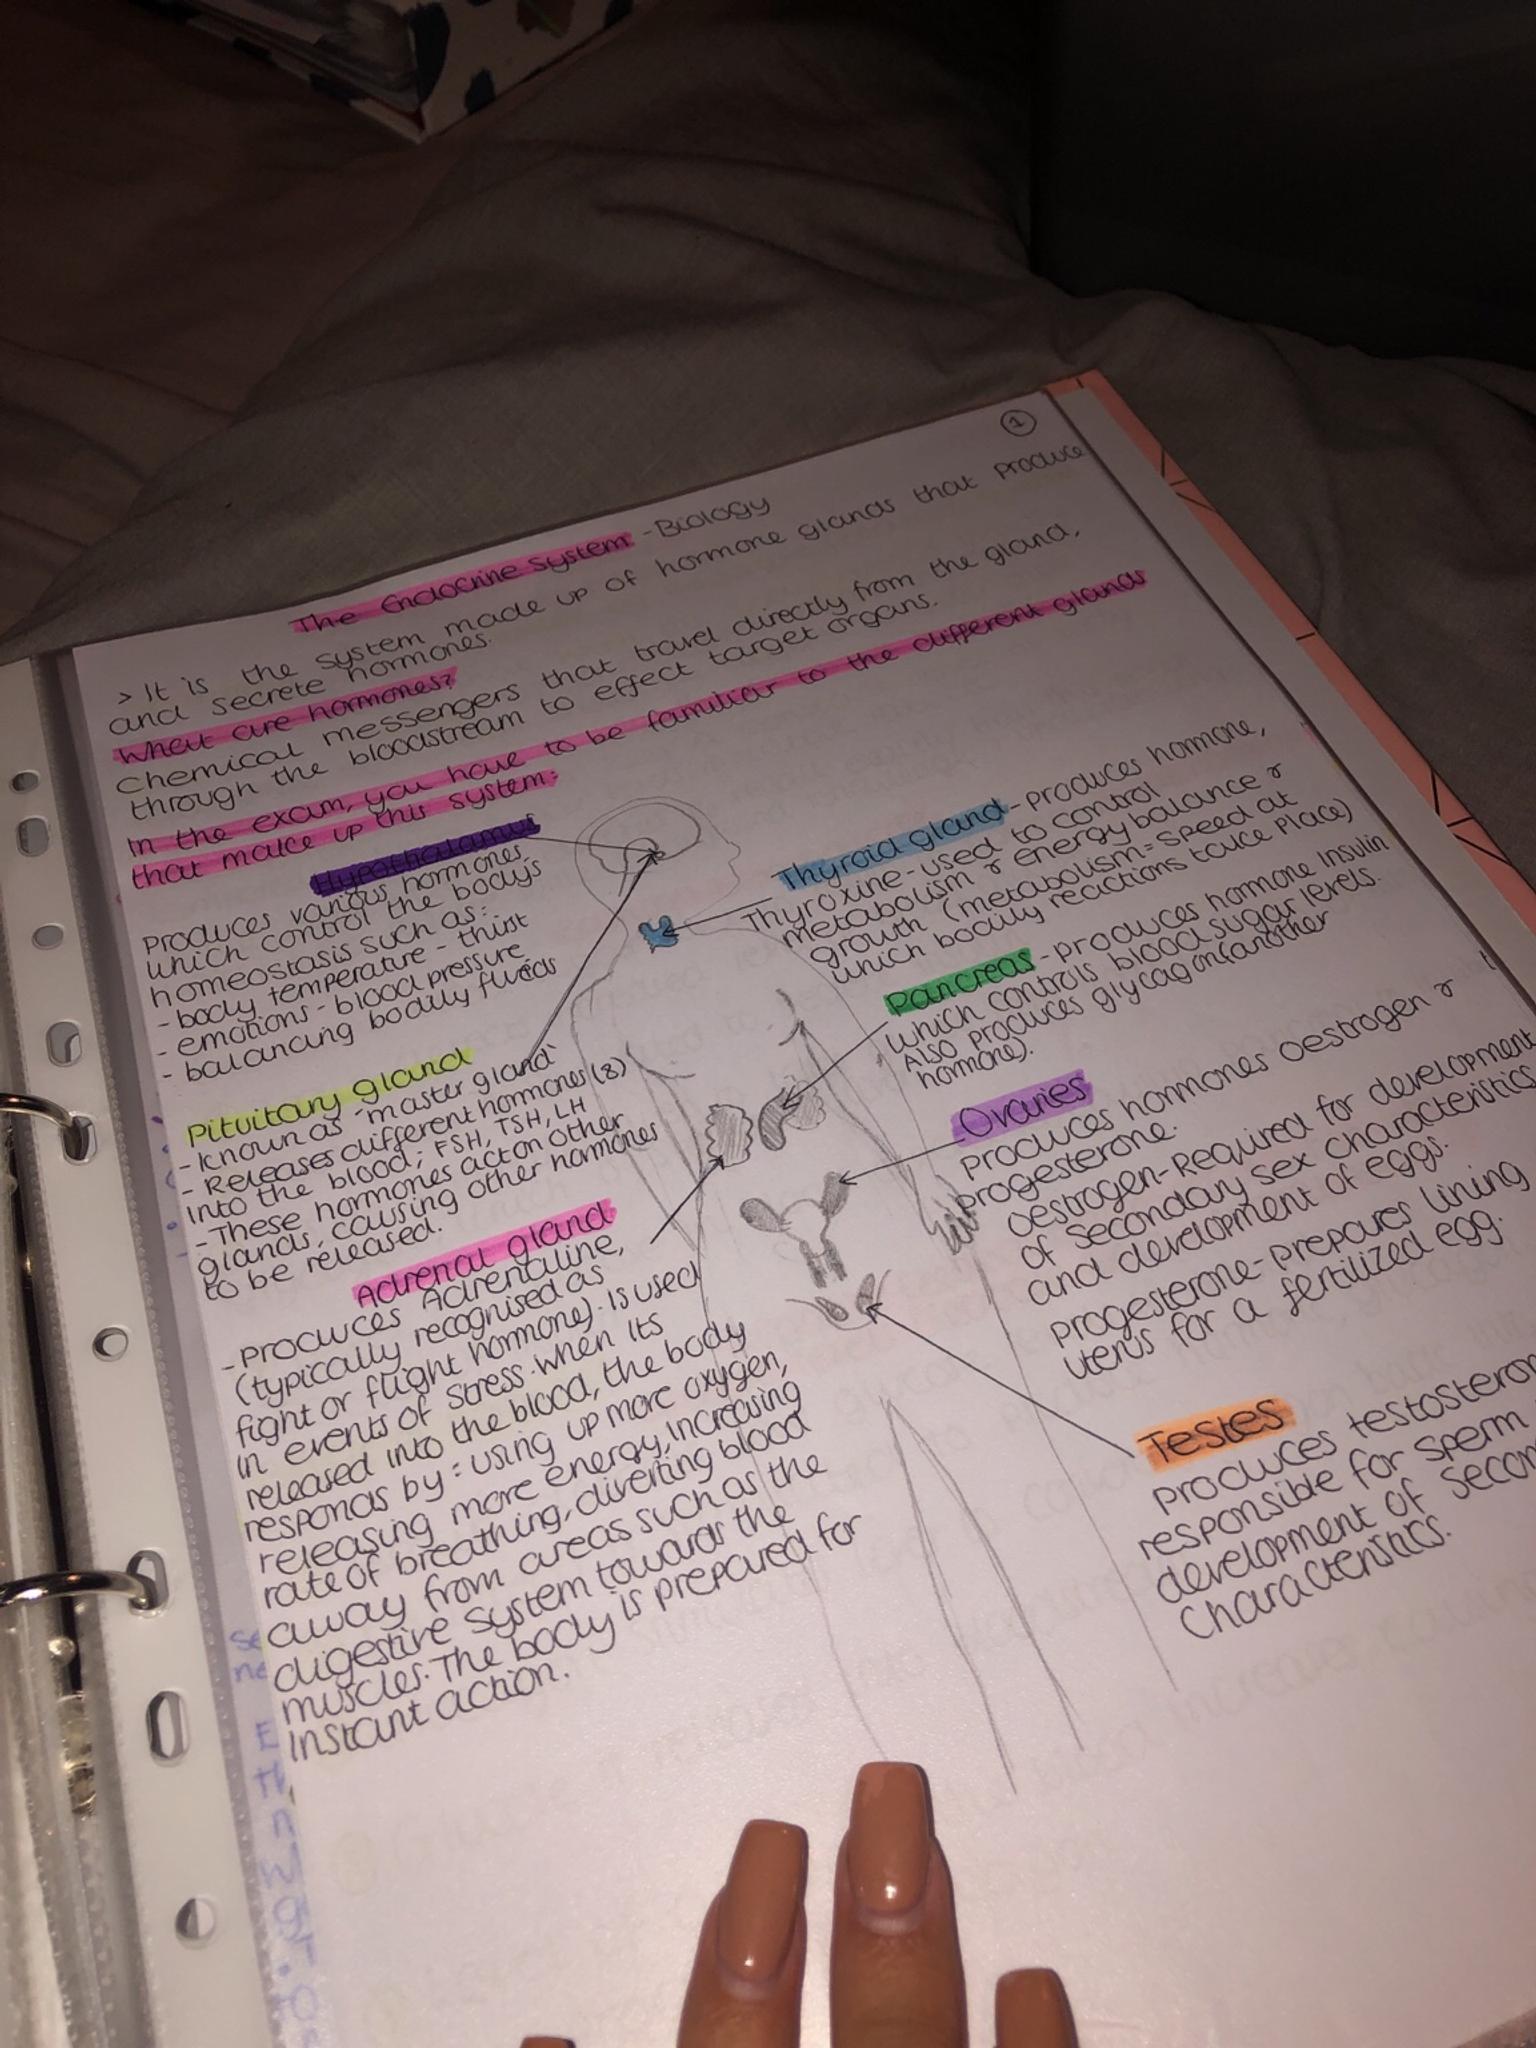 1
The Endocrine System - Biology
> It is the system made up of hormone glands that produce
and secrete hormones.
What are hormones?
Chemical messengers that travel directly from the gland,
through the bloodstream to effect target organs.
In the exam, you have to be familiar to the different glands
that make up this system:
Hypothalamus
Produces various hormones
which control the body's
homeostasis such as:
- body temperature - thirst
- emotions - blood pressure
- balancing bodily fluids
Pituitary gland
- Known as 'master gland'
- Releases different hormones (8)
into the blood; FSH, TSH, LH
- These hormones act on other
glands, causing other hormones
to be released.
Adrenal gland
- Produces Adrenaline,
(typically recognised as
fight or flight hormone). Is used
in events of stress. When its
released into the blood, the body
responds by: using up more oxygen,
releasing more energy, increasing
rate of breathing, diverting blood
away from areas such as the
digestive system towards the
muscles. The body is prepared for
instant action.
Thyroid gland - produces hormone,
Thyroxine - used to control
metabolism & energy balance &
growth (metabolism = speed at
which bodily reactions take place)
Pancreas - produces hormone Insulin
which controls blood sugar levels.
Also produces glycagon (another
hormone).
Ovaries
produces hormones oestrogen &
progesterone.
oestrogen - Required for development
of secondary sex characteristics
and development of eggs.
progesterone - prepares lining
uterus for a fertilized egg.
Testes
produces testosteron
responsible for sperm
development of secon
characteristics.